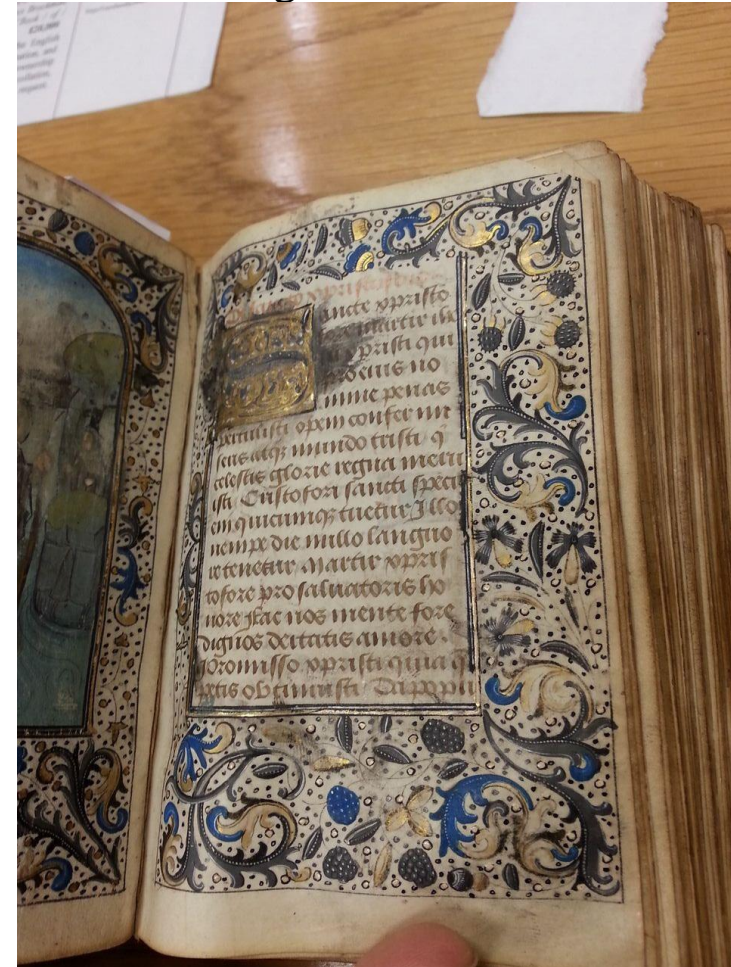 €20,000
ancte xpristo
martir ihu
xpristi qui
pro eius no
mine penas
opem confer nr̄
seris atq; mundo tristi q̄
celestis glorie regna meru
isti Cristofori sancti speci
em quicumq; tuetur Illo
nempe die nullo languo
re tenetur Martir xpris
tofore pro saluatoris ho
nore Fac nos mente fore
dignos deitatis amore
Promisso xpristi quia q̄
petis obtinuisti Da popu